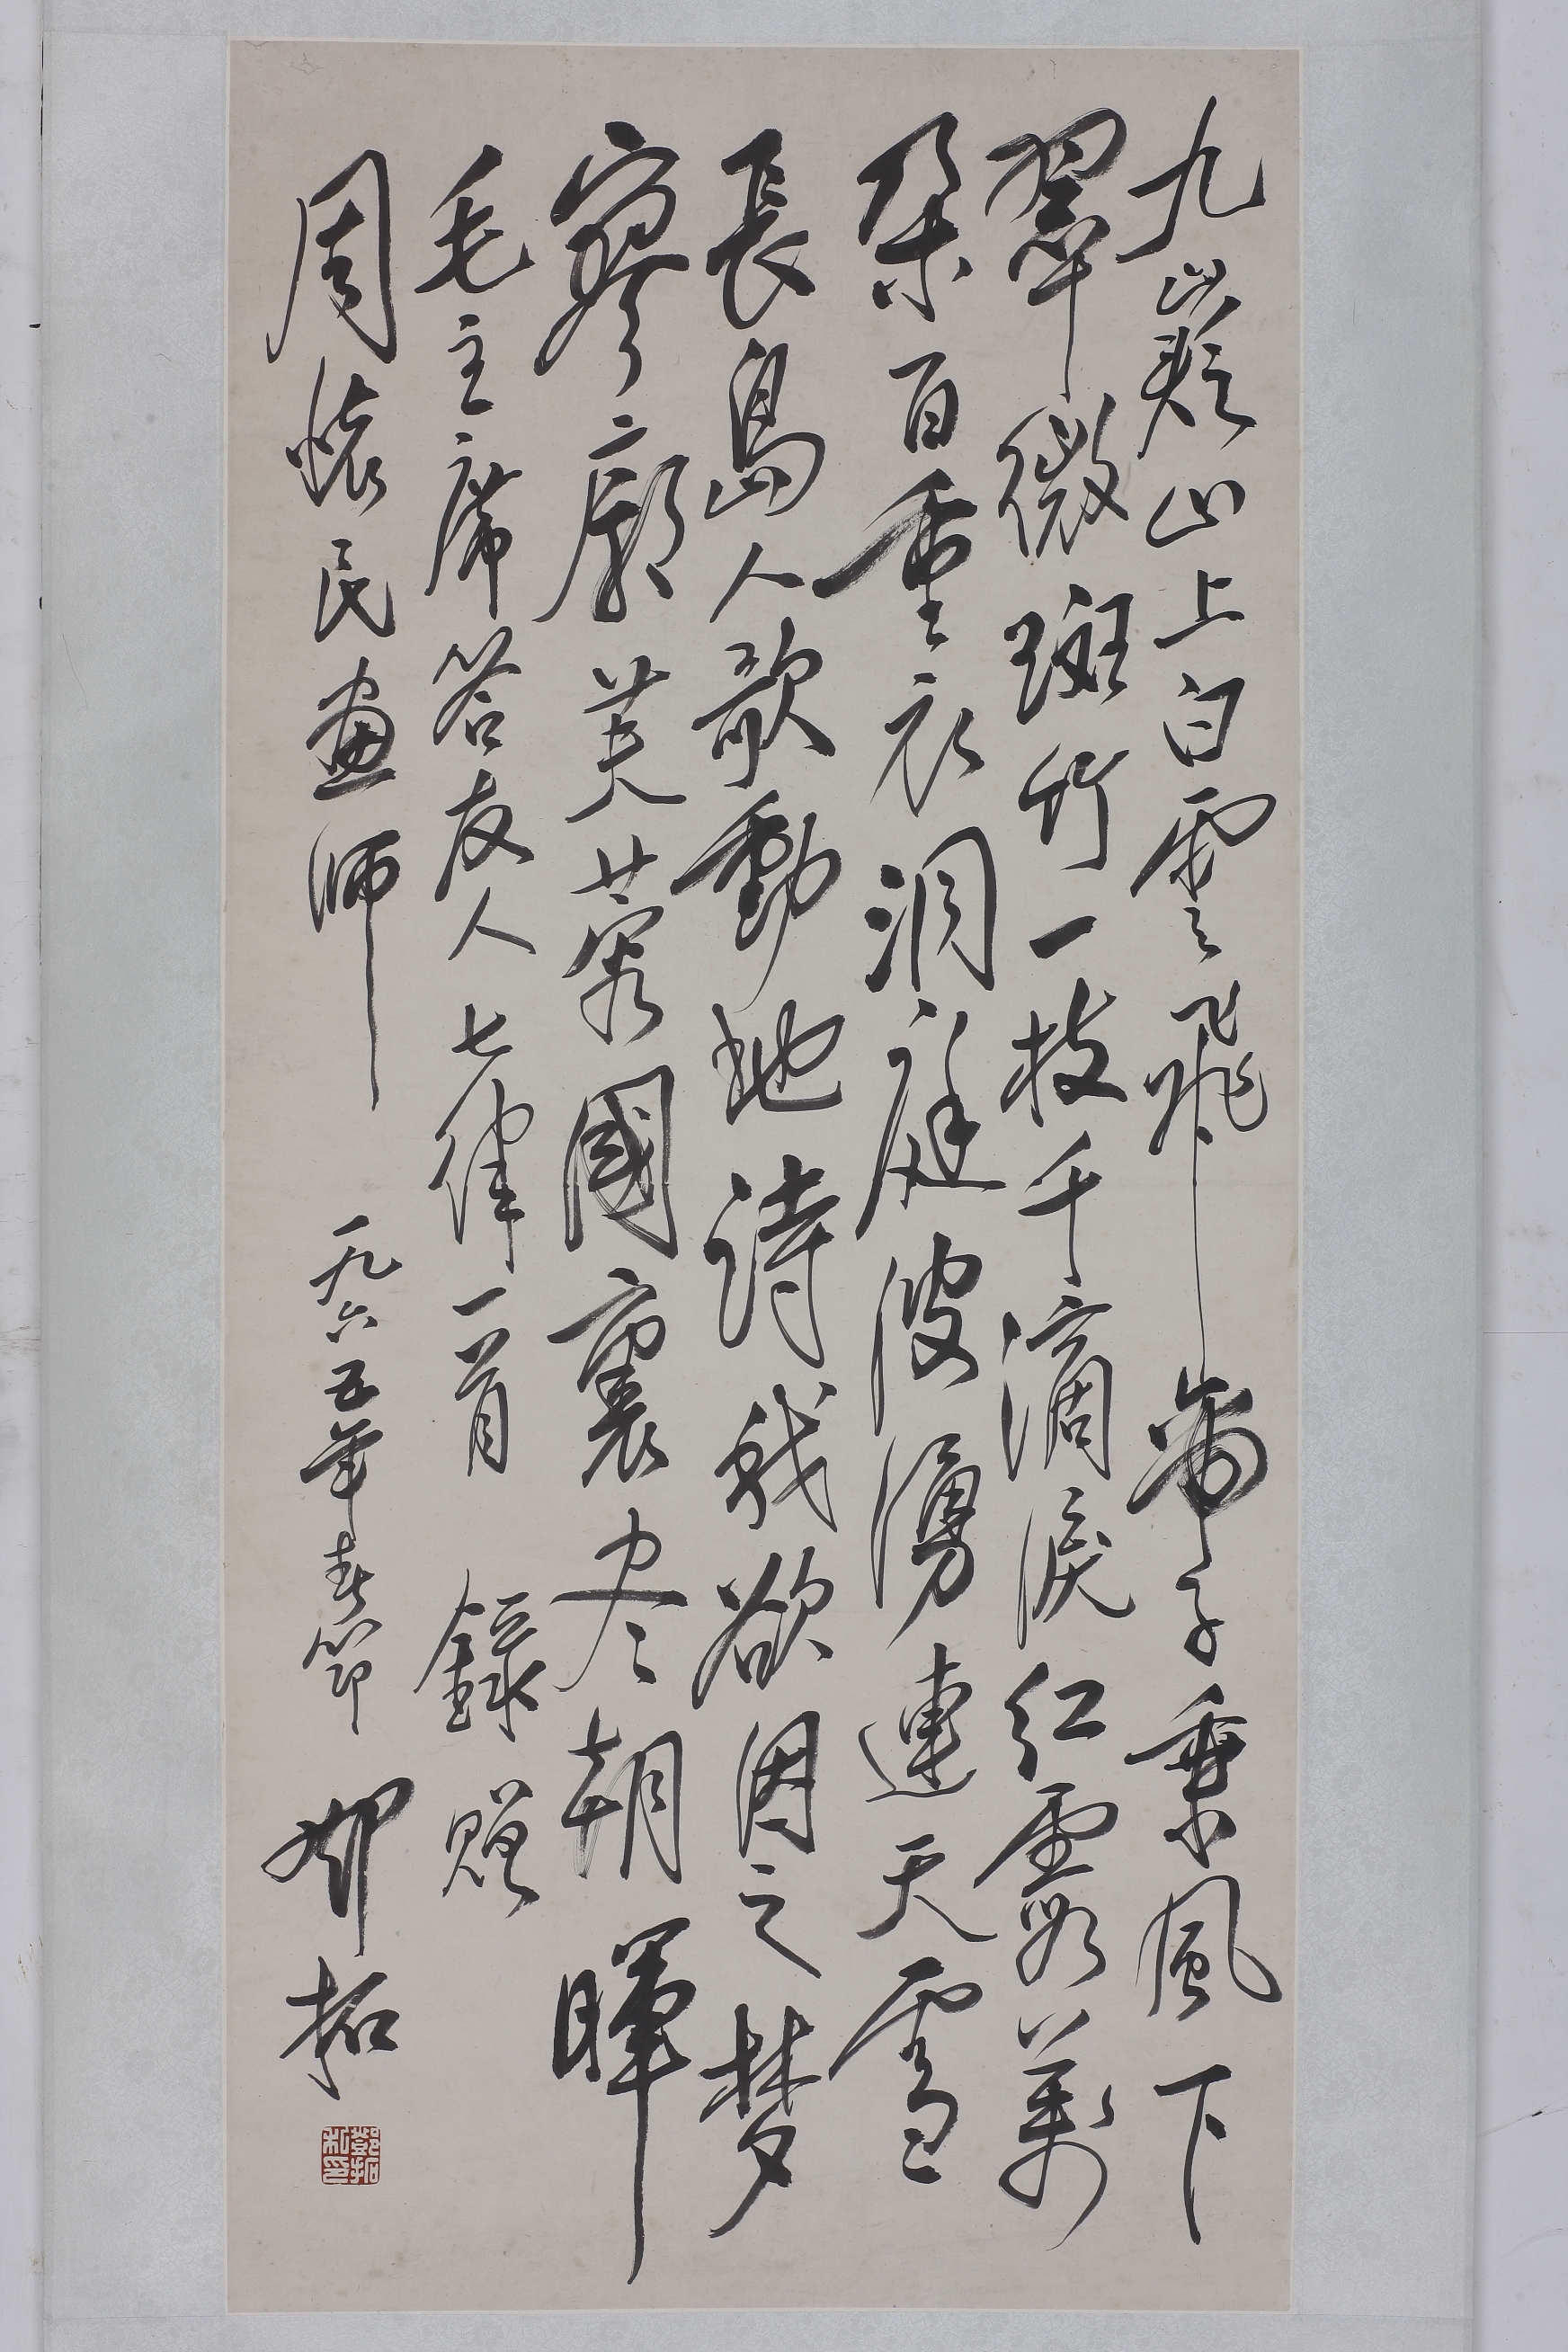 九嶷山上白雲飛帝子乘風下
翠微斑竹一枝千滴淚紅霞萬
朵百重衣洞庭波湧連天雪
長島人歌動地詩我欲因之梦
寥廓芙蓉國裏尽朝暉
毛主席答友人七律一首 錄贈
周懷民畫师 一九六五年春節 鄧拓
鄧拓
私印